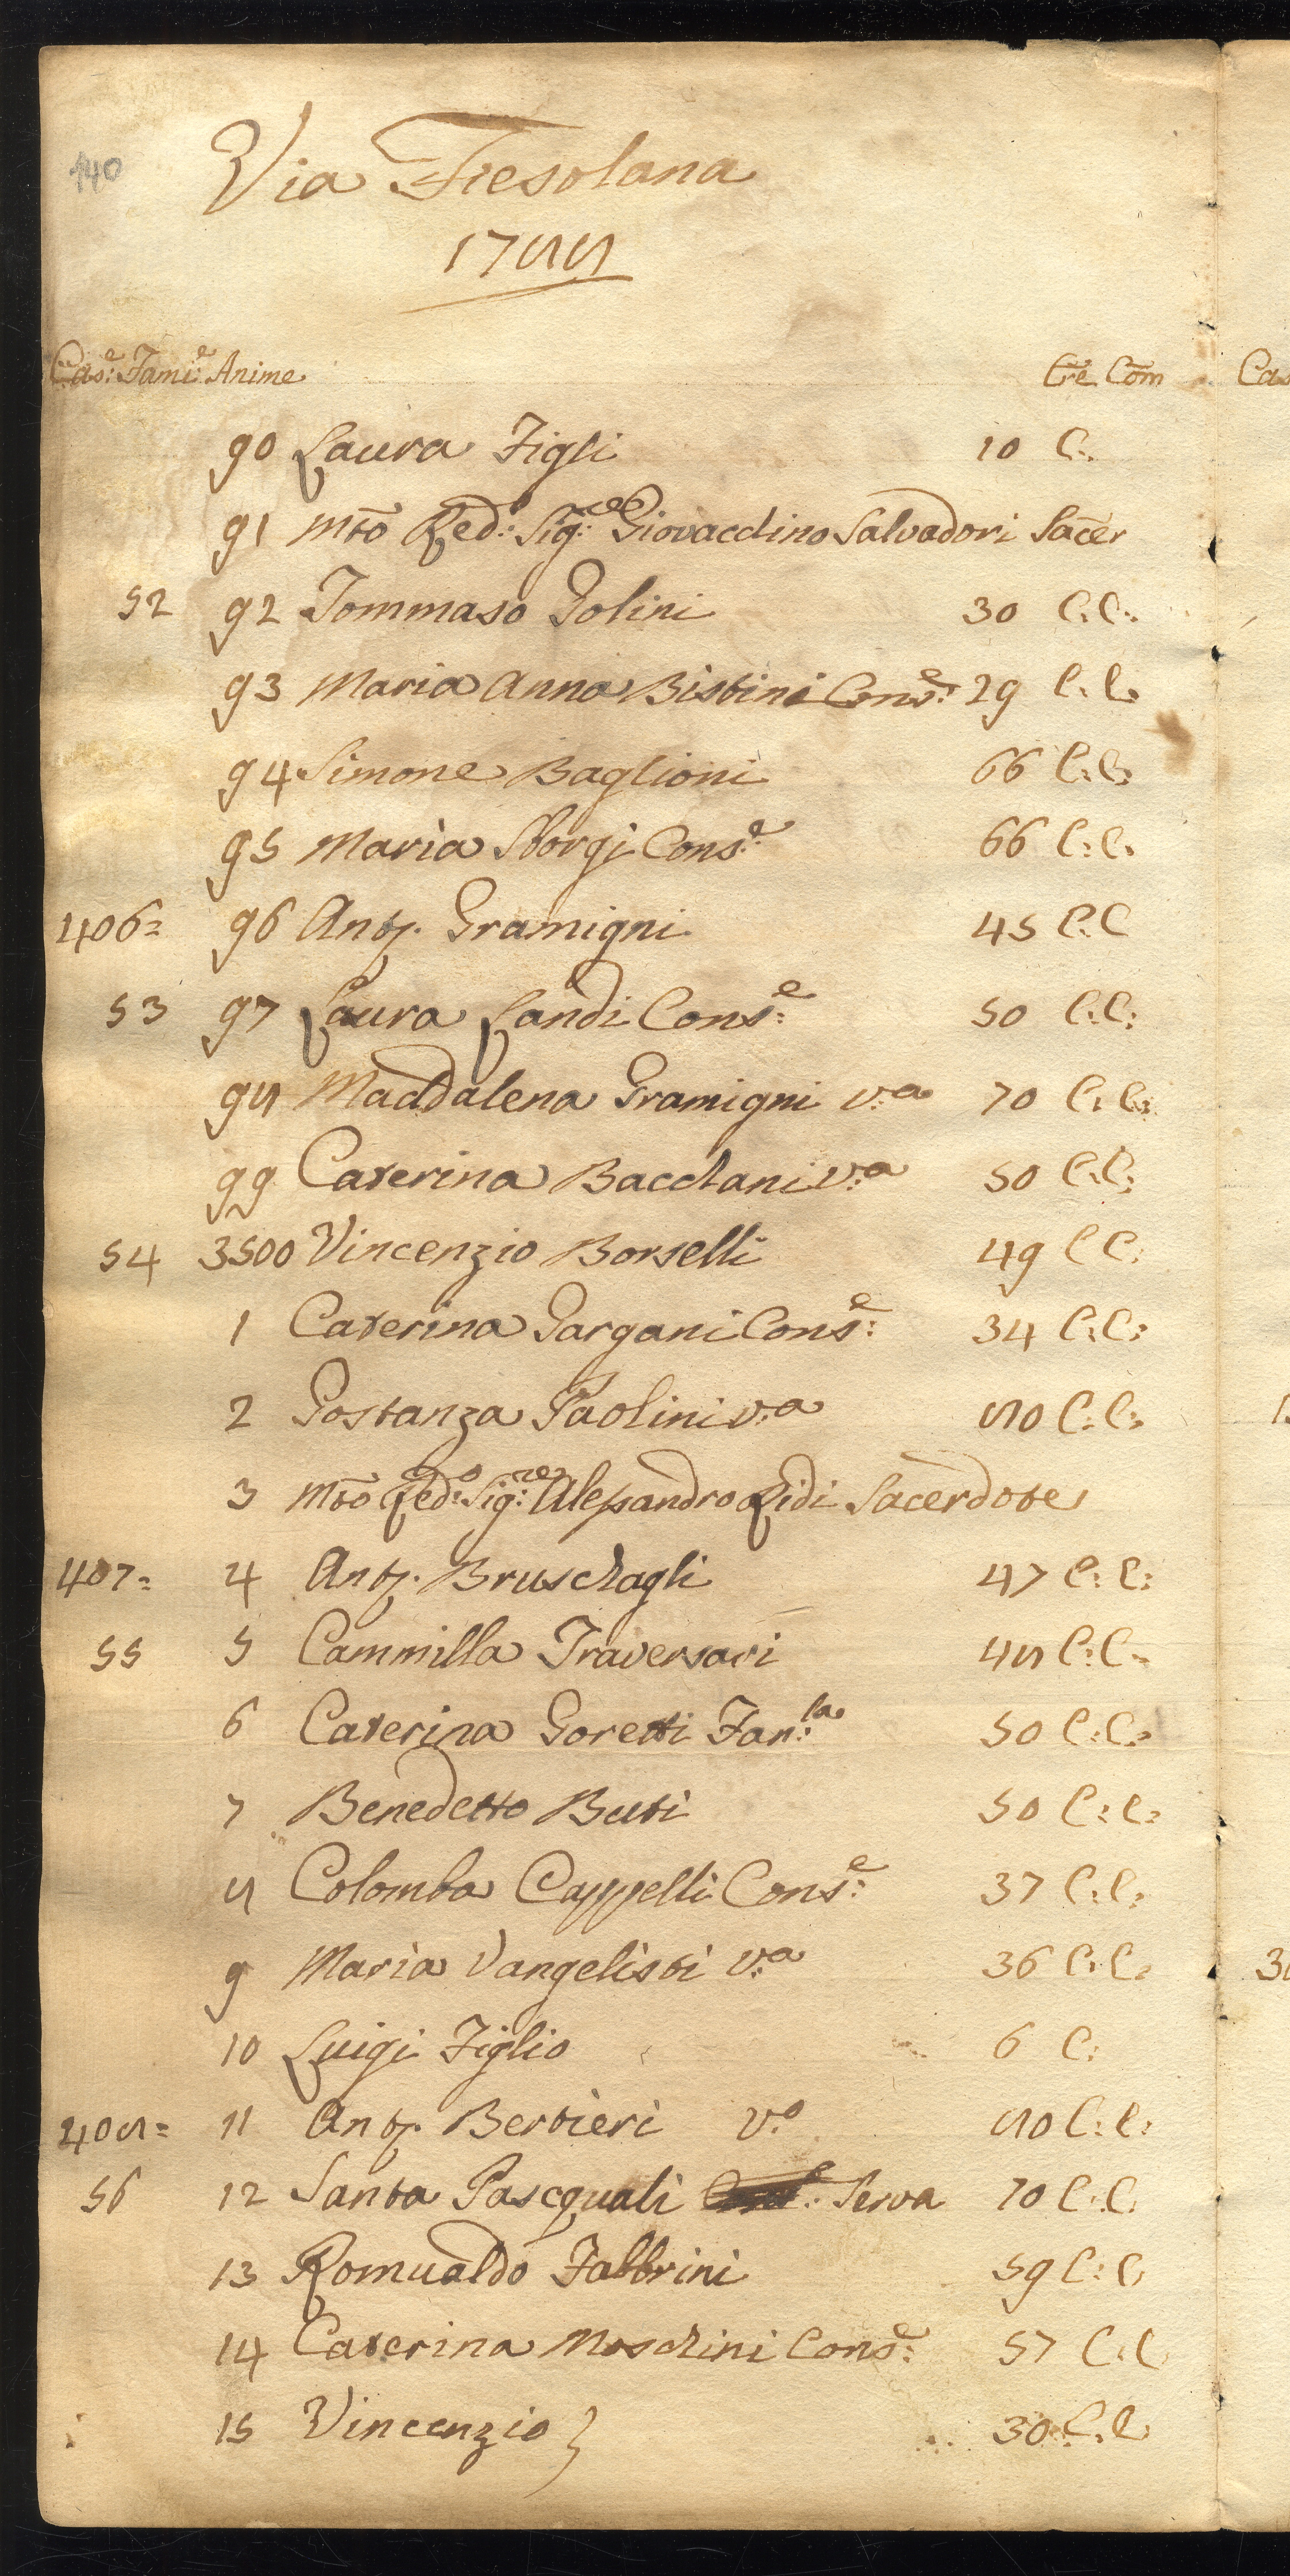 140
Via Fiesolana
1788
Cas:e Fami:e Anime Cre Com
90 Laura Figli 10 C:
91 Mto Red:o Sig:re Giovacchino Salvadori Sacer
52 92 Tommaso Golini 30 C:C:
93 Maria Anna Bistini Cons:e 29 C:C:
94 Simone Baglioni 66 C:C:
95 Maria Sborgi Cons:e 66 C:C:
406= 96 Anto. Gramigni 45 C:C
53 97 Laura Landi Cons:e 50 C:C:
98 Maddalena Gramigni V:a 70 C:C:
99 Caterina Bacchani V:a 50 C:C:
54 3500 Vincenzio Borselli 49 C C:
1 Caterina Gargani Cons:e 34 C:C:
2 Gostanza Paolini V:a 80 C:C:
3 Mto Red:o Sig:re Alessandro Ridi Sacerdote
407= 4 Anto. Bruschagli 47 C:C:
55 5 Cammilla Traversari 48 C:C:
6 Caterina Goretti Fan:la 50 C:C:
7 Benedetto Buti 50 C:C:
8 Colomba Cappelli Cons:e 37 C:C:
9 Maria Vangelisti V:a 36 C:C:
10 Luigi Figlio 6 C:
408= 11 Anto. Bertieri V:o 80 C:C:
56 12 Santa Pascquali Serva 70 C:C:
13 Romualdo Fabbrini 59 C:C
14 Caterina Moschini Cons:e 57 C:C
15 Vincenzio } 30 C:C